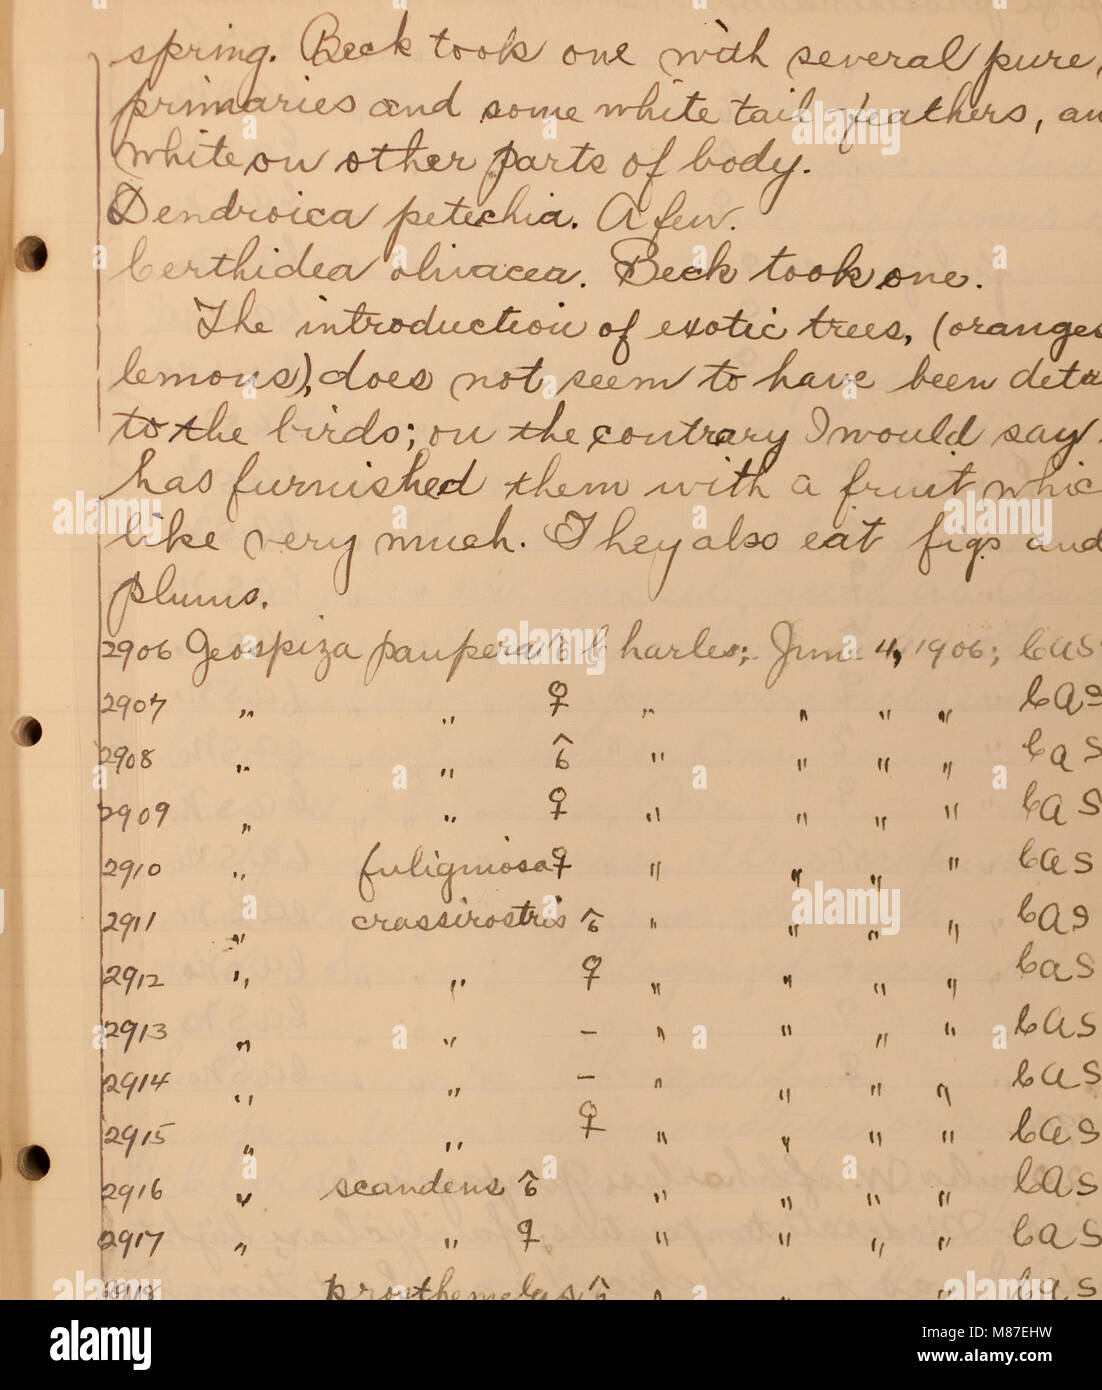 spring. Beck took one with several pure,
primaries and some white tail-feathers, an
white on other parts of body.
Dendroica petechia. A few.
Certhidea olivacea. Beck took one.
The introduction of exotic trees, (oranges
lemons), does not seem to have been det
to the birds; on the contrary I would say
has furnished them with a fruit whic
like very much. They also eat figs and
plums.
2906 Geospiza paupera ♂ Charles; June 4, 1906; Cas
2907 " " ♀ " " " " Cas
2908 " " ♂ " " " " Cas
2909 " " ♀ " " " " Cas
2910 " fuliginosa ♀ " " " " Cas
2911 " crassirostris ♂ " " " " Cas
2912 " " ♀ " " " " Cas
2913 " " – " " " " Cas
2914 " " – " " " " Cas
2915 " " ♀ " " " " Cas
2916 " scandens ♂ " " " " Cas
2917 " " ♀ " " " " Cas
2918 prosthemelas ♂ " " " Cas
alamy
Image ID: M87EHW
www.alamy.com